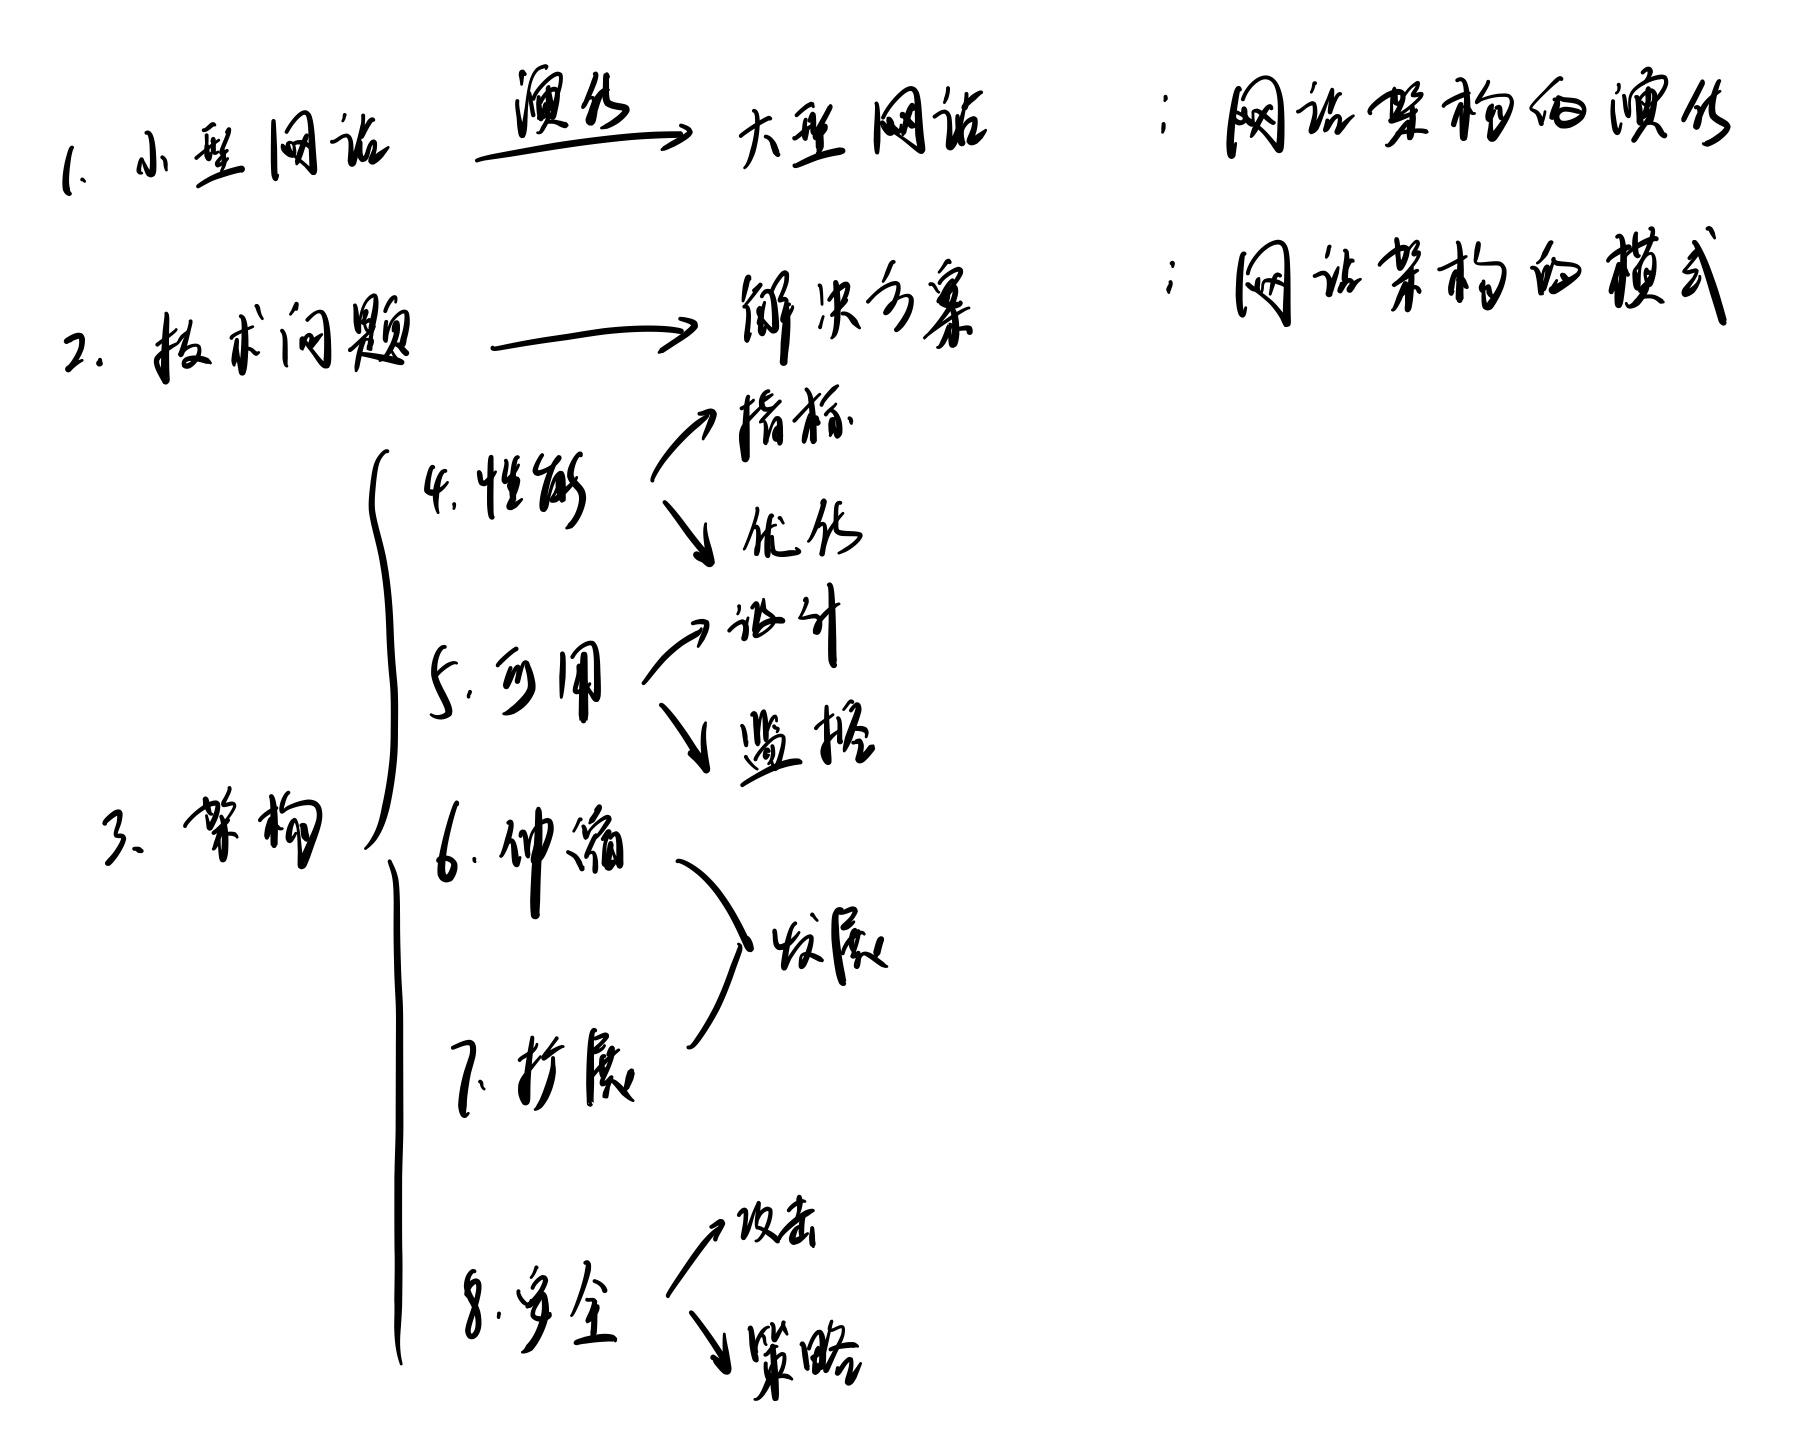 演化
1. 小型网站 → 大型网站 : 网站架构的演化
2. 技术问题 → 解决方案 : 网站架构的模式
指标
4. 性能
优化
设计
5. 可用
监控
3. 架构
6. 伸缩
发展
7. 扩展
攻击
8. 安全
策略